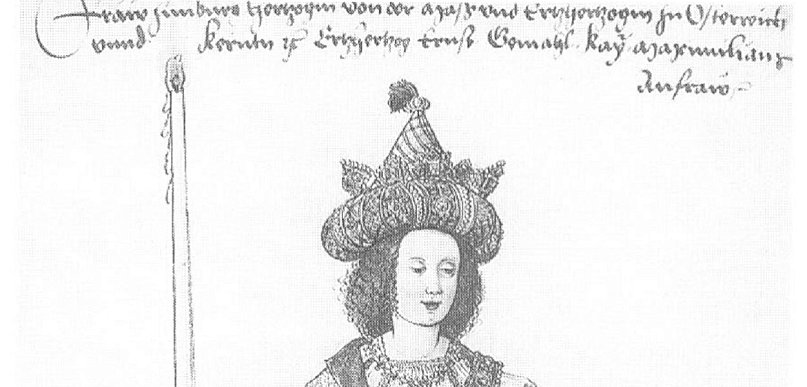 Fraw Zimburg Hertzogin von der Mass vnd Ertzhertzogin zu Osterreich
vnnd Kerntn ꝛc Ertzhertzog Ernst Gemahl. Kay Maximilians
Anfraw